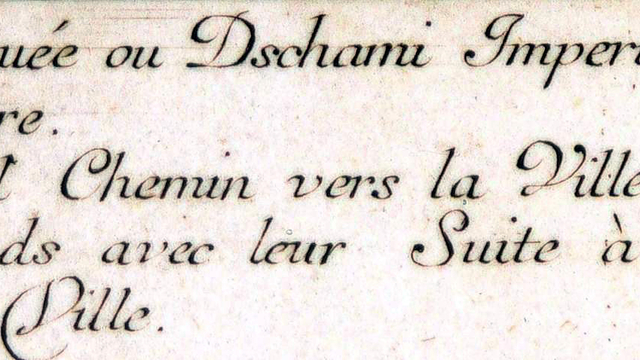 uée ou Dschami Imperi
re.
l Chemin vers la Ville
ds avec leur Suite à
Ville.